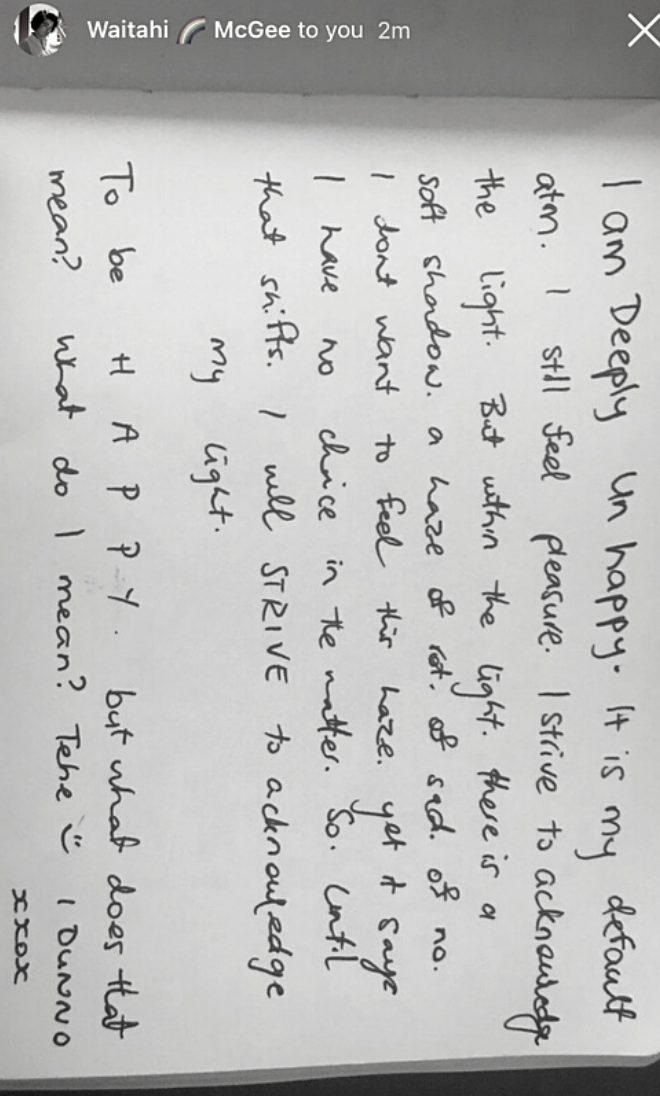 Waitahi 🌈 McGee to you 2m
I am Deeply Unhappy. It is my default
atm. I still feel pleasure. I strive to acknowledge
the light. But within the light. there is a
soft shadow. a haze of rot. of sad. of no.
I dont want to feel this haze. yet it says
I have no choice in the matter. So. Until
that shifts. I will STRIVE to acknowledge
my light.
To be H A P P Y. but what does that
mean? What do I mean? Tehe :) I DUNNO
xxox